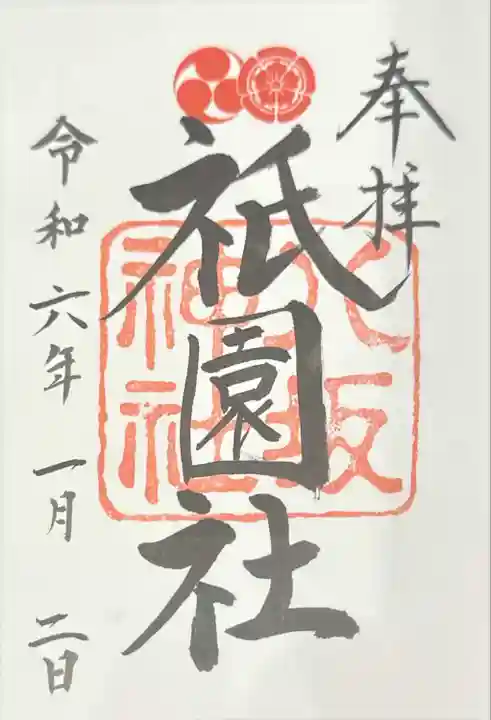 奉拝
八坂
神社
祇園社
令和六年一月二日